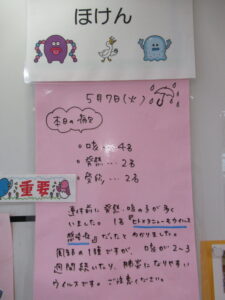 ほけん
5月7日(火)
本日の病欠
○ 咳 … 4名
○ 発熱 … 2名
重要
連休前に発熱、咳の子が多く
いました。1名『ヒトメタニューモウイルス
感染症』だったとわかりました。
風邪の1種ですが、咳が2〜3
週間続いたり、肺炎になりやすい
ウイルスです。ご注意ください。